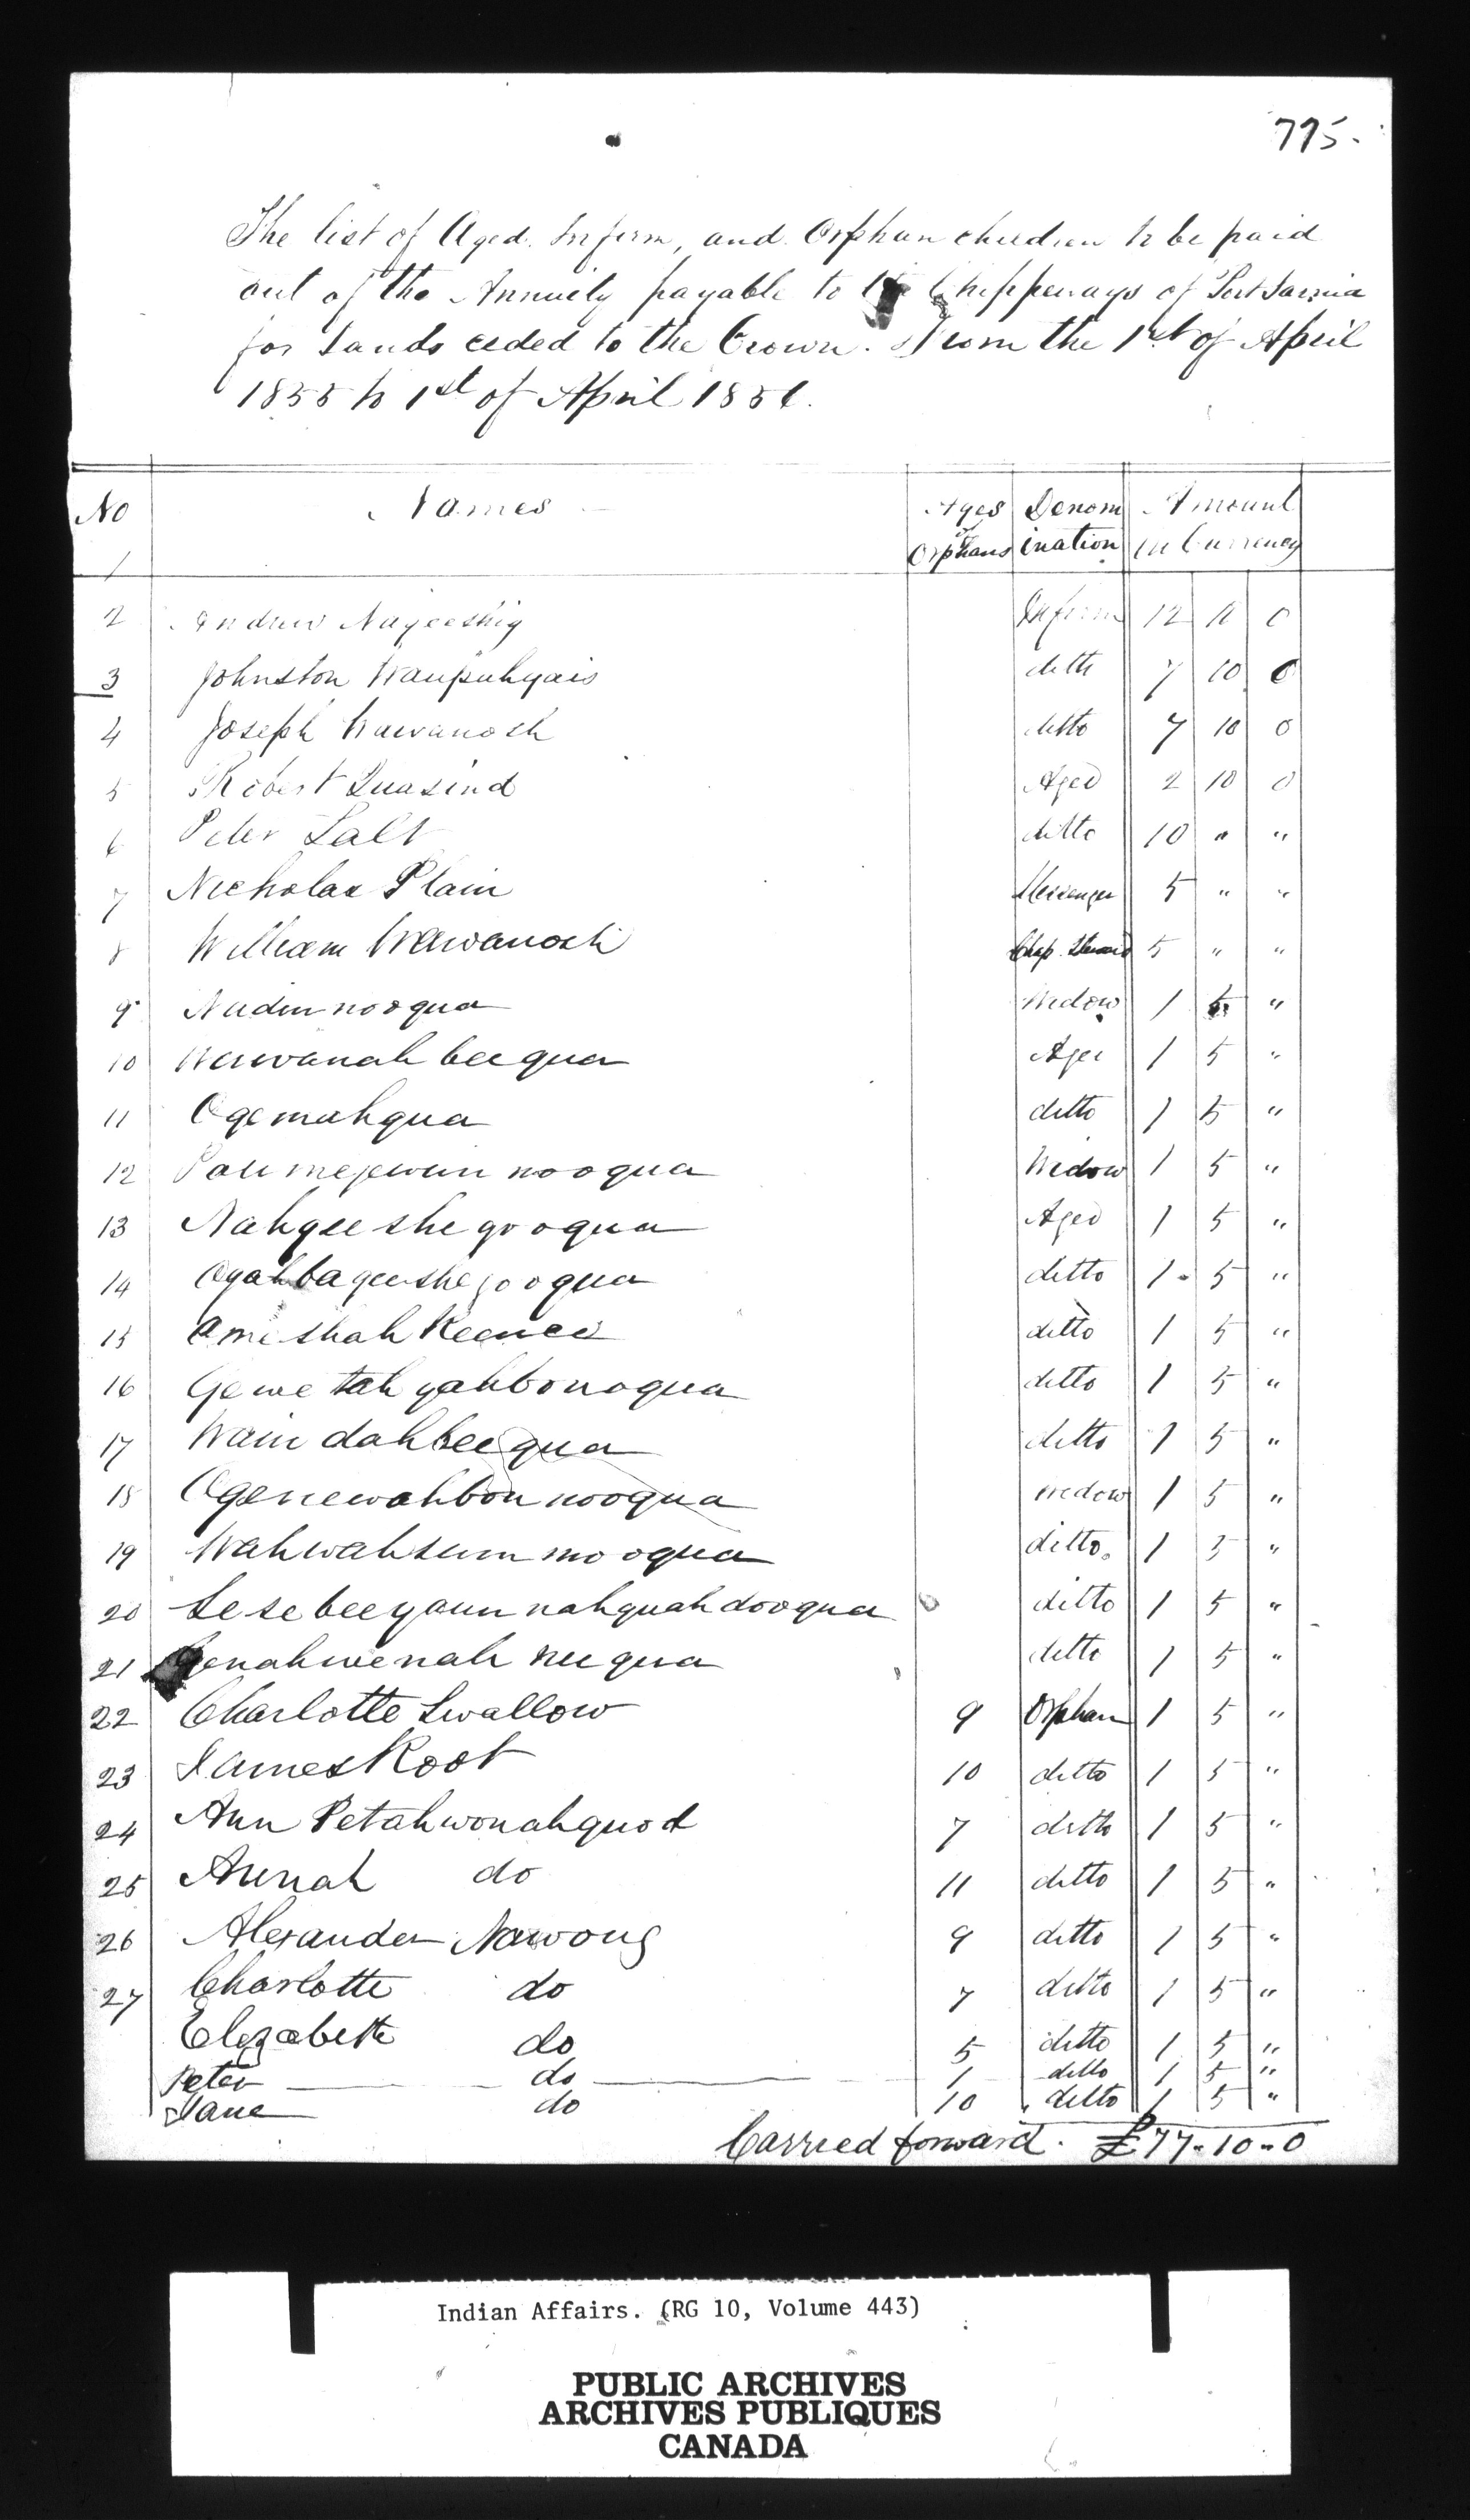 795.
The list of Aged. Infirm, and Orphan children to be paid
out of the Annuity payable to the Chippeways of Port Sarnia
for Lands ceded to the Crown. From the 1st of April
1855 to 1st of April 1856.
No Names Ages of Orphans Denomination Amount in Currency
1
2 Andrew Nageeshig Infirm 12 10 0
3 Johnston Waupuhgais ditto 7 10 0
4 Joseph Wawanosh ditto 7 10 0
5 Robert Quasind Aged 2 10 0
6 Peter Salt ditto 10 " "
7 Nicholas Plain Messenger 5 " "
8 William Wawanosh Chap. Steward 5 " "
9 Nadin nooqua Widow 1 5 "
10 Wawanah bee qua Aged 1 5 "
11 Ogemahqua ditto 1 5 "
12 nooqua Widow 1 5 "
13 Nahgee she gooqua Aged 1 5 "
14 Ogahbageeshegooqua ditto 1 5 "
15 Ameshah Keence ditto 1 5 "
16 Gewe tah gahbonoqua ditto 1 5 "
17 Wain dahbeequa ditto 1 5 "
18 Ogenewahbon nooqua Widow 1 5 "
19 Wahwahsum mooqua ditto. 1 5 "
20 Sesebeegaun nahquahdooqua ditto 1 5 "
21 Genahwenah nee qua ditto 1 5 "
22 Charlotte Swallow 9 Orphan 1 5 "
23 James Root 10 ditto 1 5 "
24 Ann Petahwonahquod 7 ditto 1 5 "
25 Annah do 11 ditto 1 5 "
26 Alexander Nawong 9 ditto 1 5 "
27 Charlotte do 7 ditto 1 5 "
Elizabeth do 5 ditto 1 5 "
Peter do 1 ditto 1 5 "
Jane do 10 ditto 1 5 "
Carried forward. £77-10-0
Indian Affairs. (RG 10, Volume 443)
PUBLIC ARCHIVES
ARCHIVES PUBLIQUES
CANADA